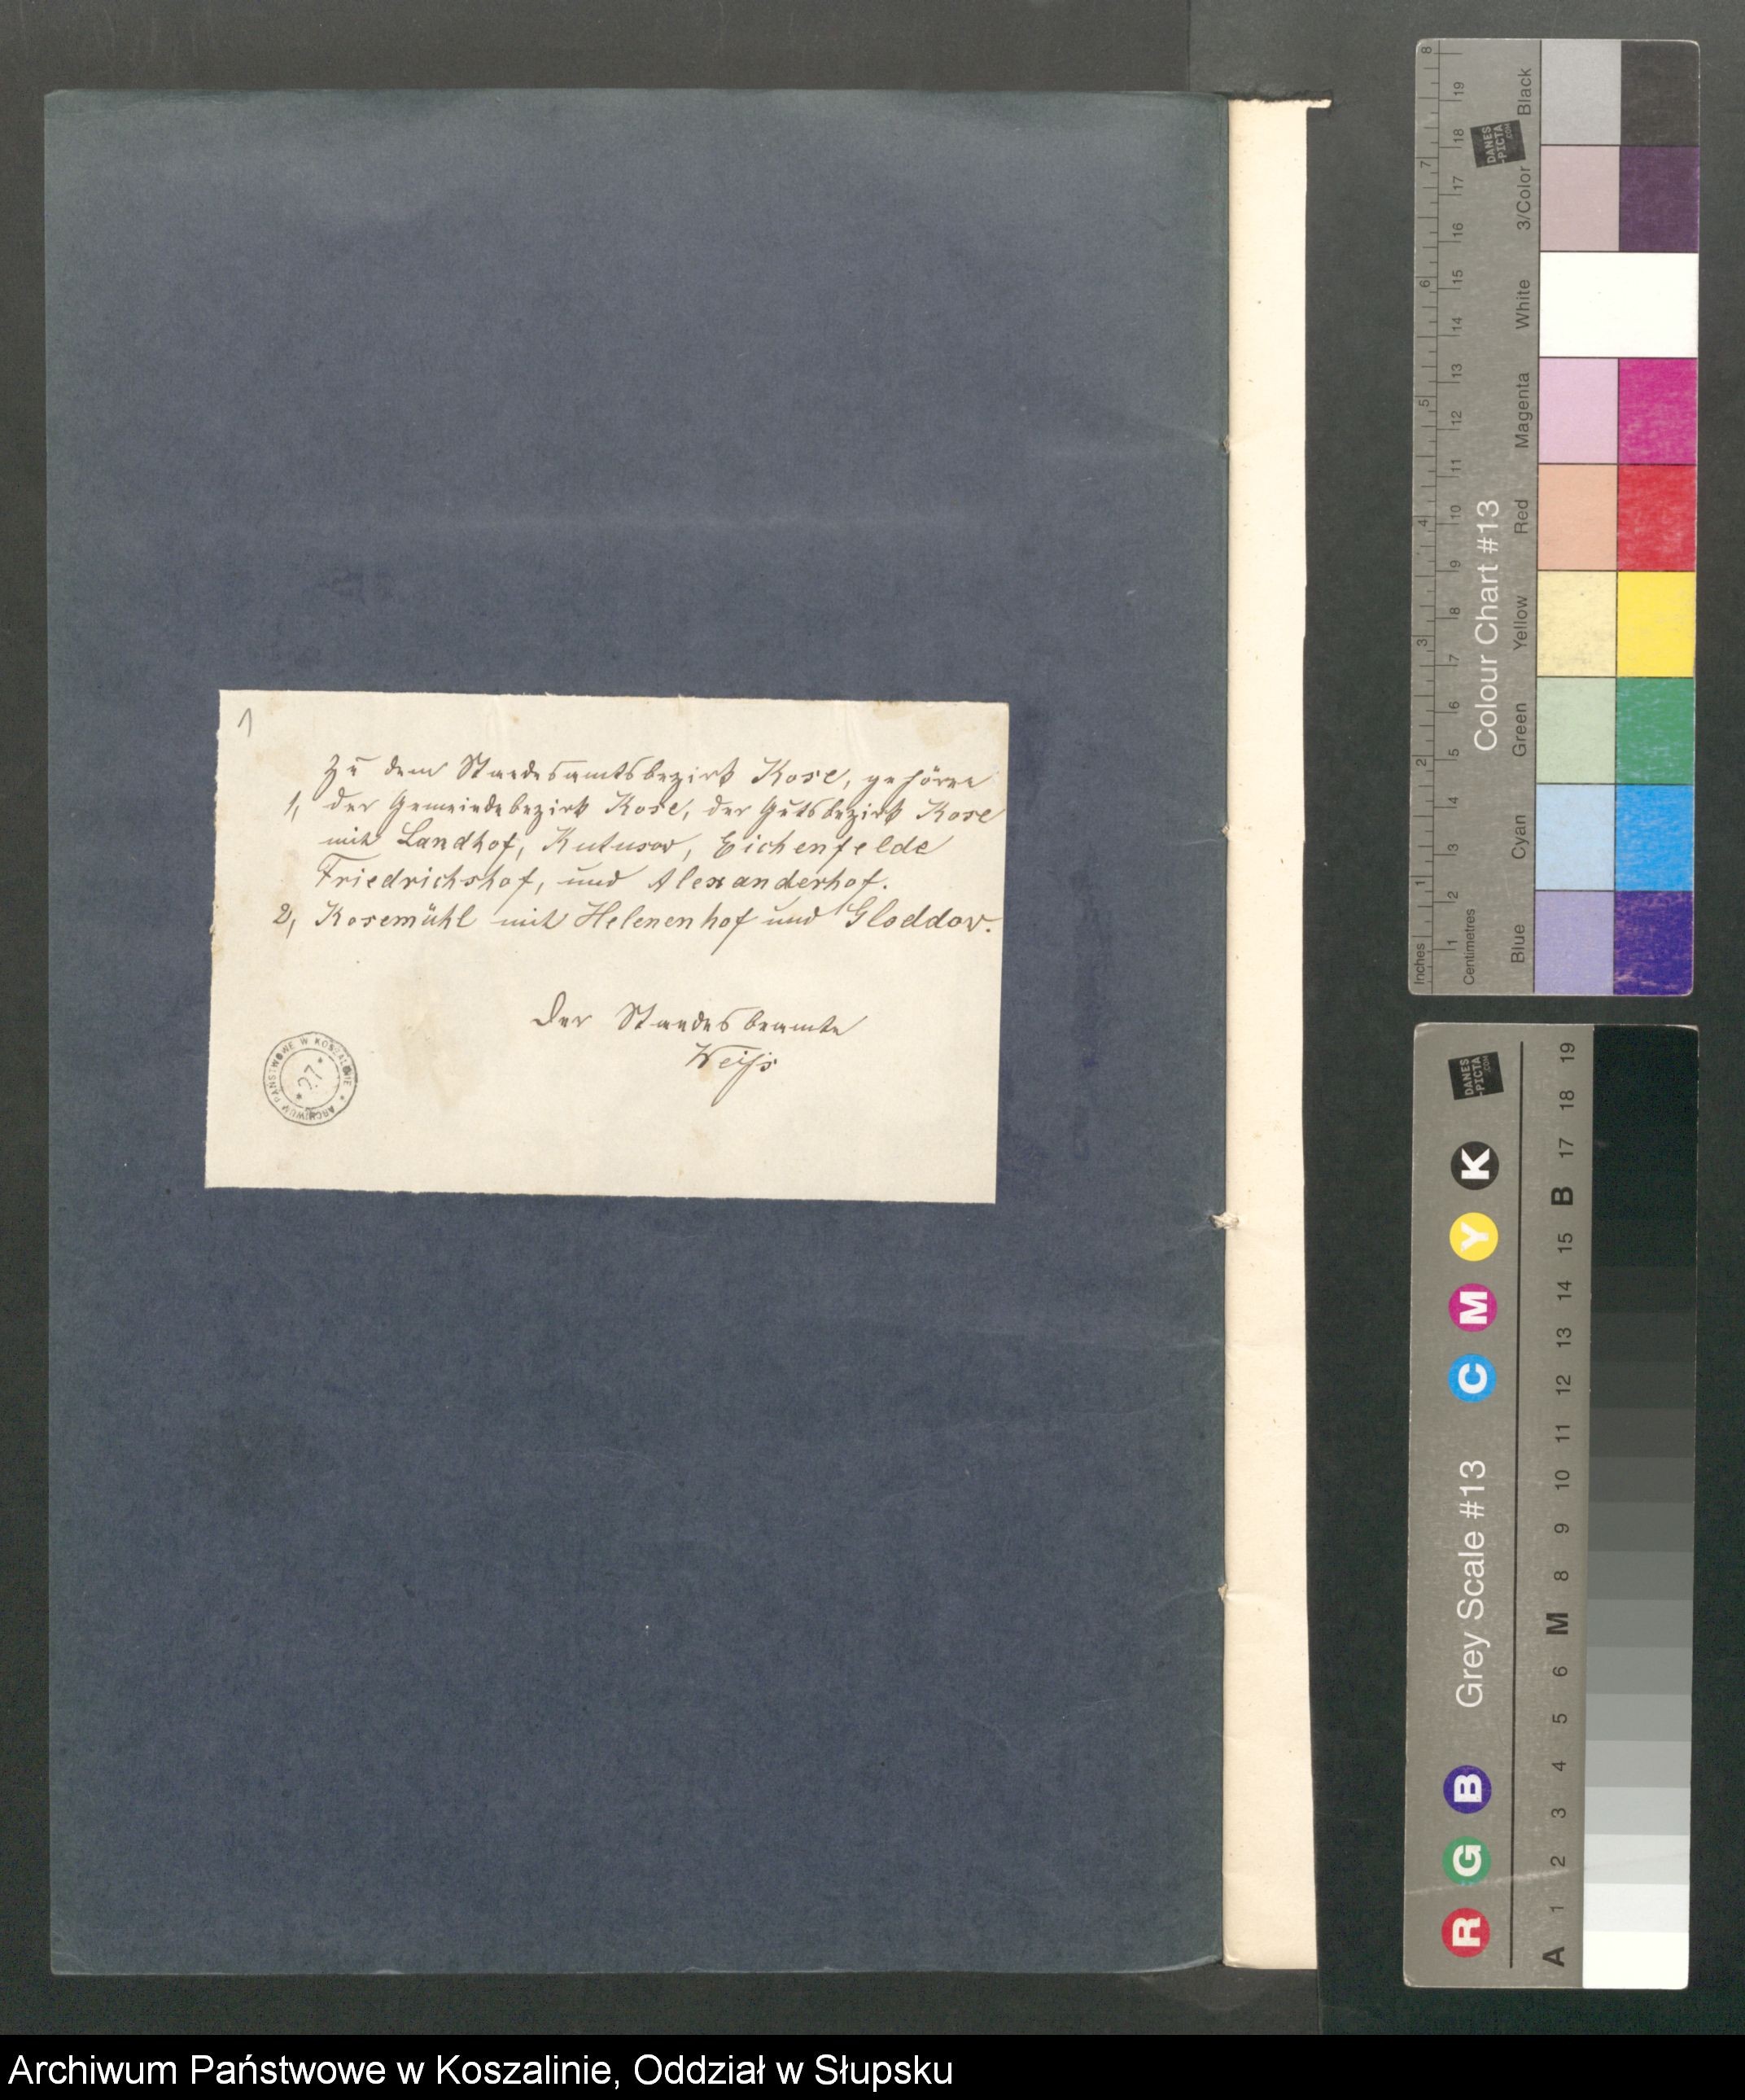 1
Zu dem Standesamtsbezirk Kose, gehören
1, der Gemeindebezirk Kose, der Gutsbezirk Kose
mit Landhof, Kutusow, Eichenfelde
Friedrichshof, und Alexanderhof.
2, Kosemühl mit Helenenhof und Gloddow.
Der Standesbeamte
Weiß
ARCHIWUM PAŃSTWOWE W KOSZALINIE
* 27 *
8 7 6 5 4 3 2 1 Inches
19 18 17 16 15 14 13 12 11 10 9 8 7 6 5 4 3 2 1 Centimetres
DANES
-PICTA
.COM
Colour Chart #13
Blue Cyan Green Yellow Red Magenta White 3/Color Black
DANES
-PICTA
.COM
R G B Grey Scale #13 C M Y K
A 1 2 3 4 5 6 M 8 9 10 11 12 13 14 15 B 17 18 19
Archiwum Państwowe w Koszalinie, Oddział w Słupsku